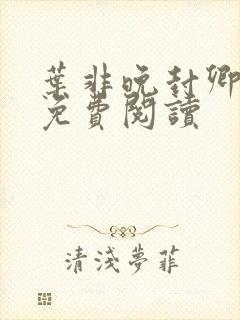 葉非晚封卿
免費閱讀
清淺夢菲